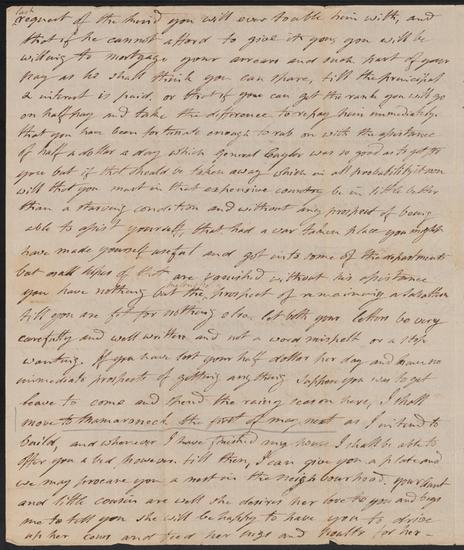 last
request of the kind you will ever trouble him with, and
that if he cannot afford to give it you, you will be
willing to mortgage your arrears and such part of your
pay as he shall think you can spare, till the principal
& interest is paid. or that if you can get the rank you will go
on half pay and take the difference to repay him immediately.
that you have been fortunate enough to rub on with the assistance
of half a dollar a day which General was so good as to get for
you but if that should be taken away which in all probability it soon
will that you must in that expensive country be in little better
than a starving condition and without any prospect of being
able to assist yourself, that had a war taken place you might
have made yourself useful and got into some of the departments
but all hopes of that are vanished without his assistance
you have nothing but the prospect of remaining a
till you are fit for nothing else. let both your letters be very
carefully and well written and not a word mispelt or a stop
wanting. If you have lost your half dollar per day and have no
immediate prospects of getting anything Suppose you was to get
leave to come and spend the rainy season here, I shall
move to the first of may next as I intend to
build, and whenever I have finished my house I shall be able to
offer you a bed, however till then, I can give you a plate and
we may procure you a nest in the neighbourhood. your Aunt
and little cousin are well she desires her love to you and begs
me to tell you she will be happy to have you to drive
up her cows and feed her pigs and for her—